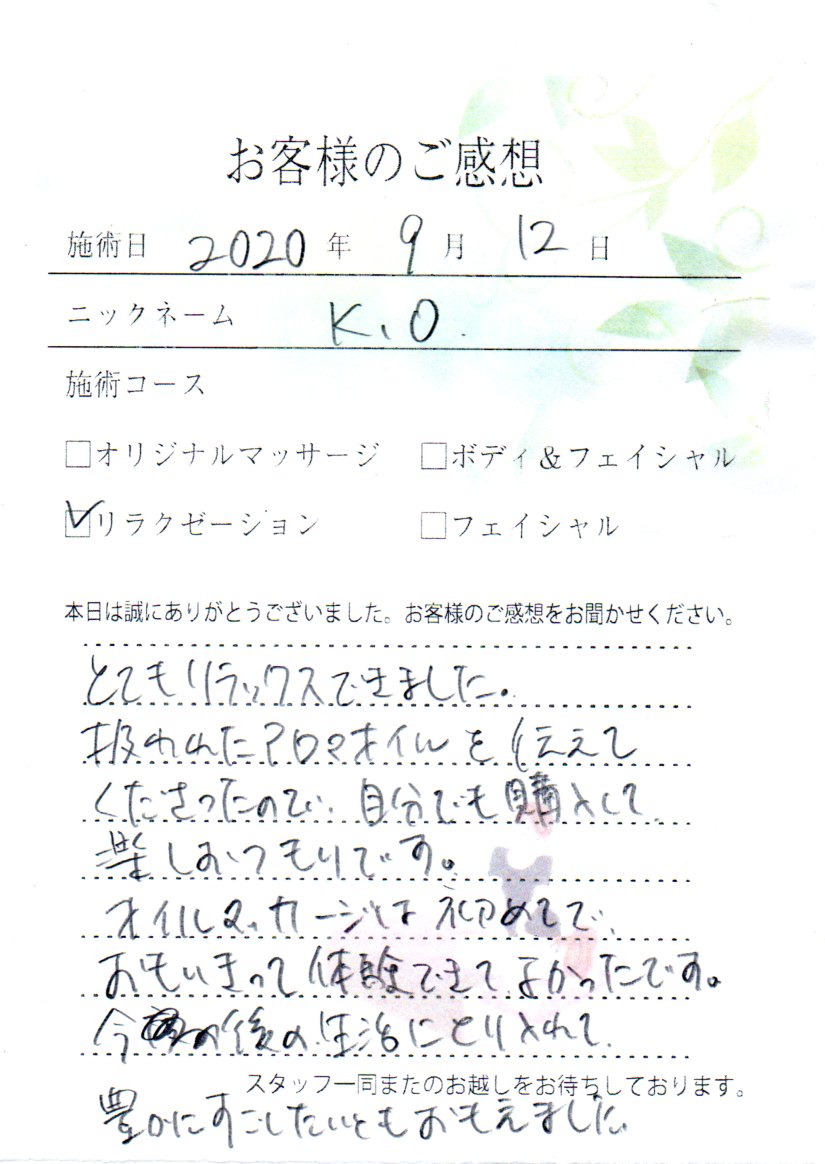 お客様のご感想
施術日 2020 年 9 月 12 日
ニックネーム K.O.
施術コース
□オリジナルマッサージ □ボディ&フェイシャル
☑リラクゼーション □フェイシャル
本日は誠にありがとうございました。お客様のご感想をお聞かせください。
とてもリラックスできました。
扱われたアロマオイルを伝えて
くださったので、自分でも購入して
楽しむつもりです。
オイルマッサージは初めてで、
おもいきって体験できてよかったです。
今後の生活にとり入れて、
スタッフ一同またのお越しをお待ちしております。
豊かにすごしたいともおもえました。